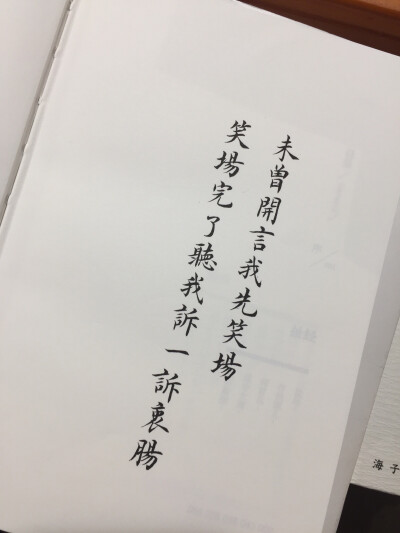 未曾開言我先笑場
笑場完了聽我訴一訴衷腸
海子